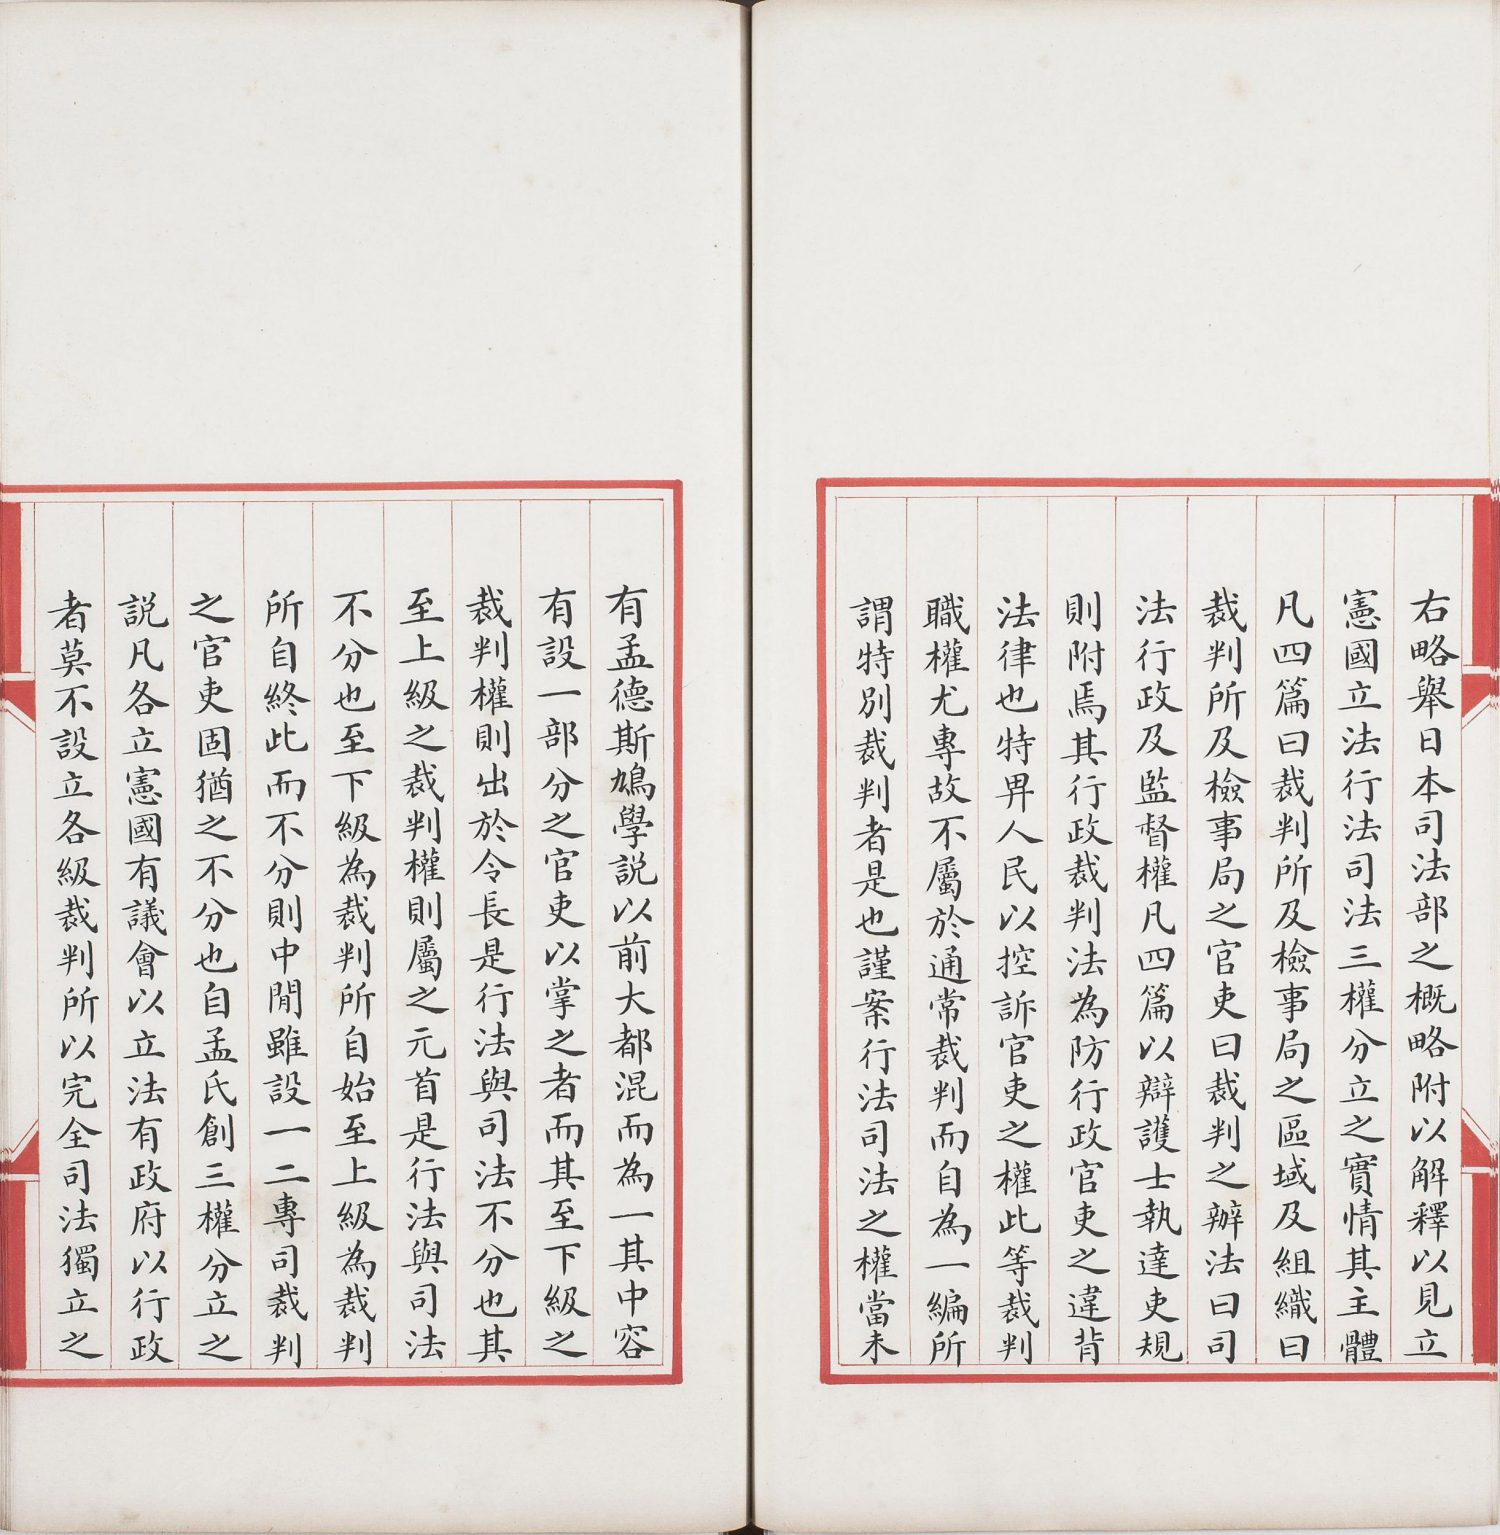 右略舉日本司法部之概略附以解釋以見立
憲國立法行法司法三權分立之實情其主體
凡四篇曰裁判所及檢事局之區域及組織曰
裁判所及檢事局之官吏曰裁判之辦法曰司
法行政及監督權凡四篇以辯護士執達吏規
則附焉其行政裁判法為防行政官吏之違背
法律也特畀人民以控訴官吏之權此等裁判
職權尤專故不屬於通常裁判而自為一編所
謂特別裁判者是也謹案行法司法之權當未
有孟德斯鳩學説以前大都混而為一其中容
有設一部分之官吏以掌之者而其至下級之
裁判權則出於令長是行法與司法不分也其
至上級之裁判權則屬之元首是行法與司法
不分也至下級為裁判所自始至上級為裁判
所自終此而不分則中閒雖設一二專司裁判
之官吏固猶之不分也自孟氏創三權分立之
説凡各立憲國有議會以立法有政府以行政
者莫不設立各級裁判所以完全司法獨立之